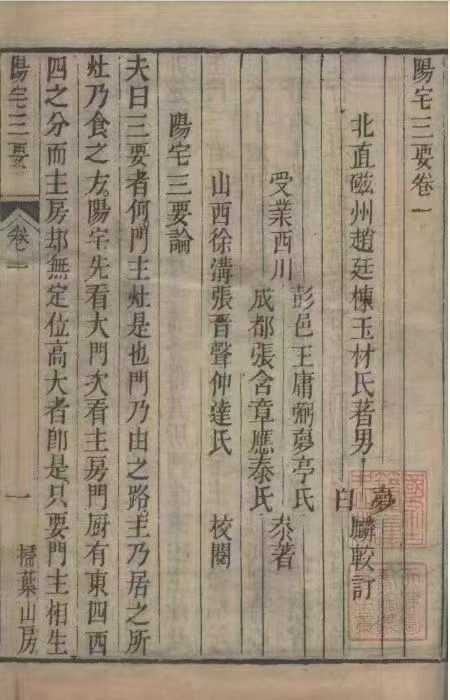 陽宅三要卷一
北直磁州趙廷棟玉材氏著男
夢
白
麟較訂
受業西川
彭邑王庸弼夢亭氏
成都張含章應泰氏
叅著
山西徐溝張晋聲仲達氏
校閱
陽宅三要論
夫曰三要者何門主灶是也門乃由之路主乃居之所
灶乃食之方陽宅先看大門次看主房門厨有東四西
四之分而主房却無定位高大者即是只要門主相生
陽宅三要
卷一
一
掃葉山房